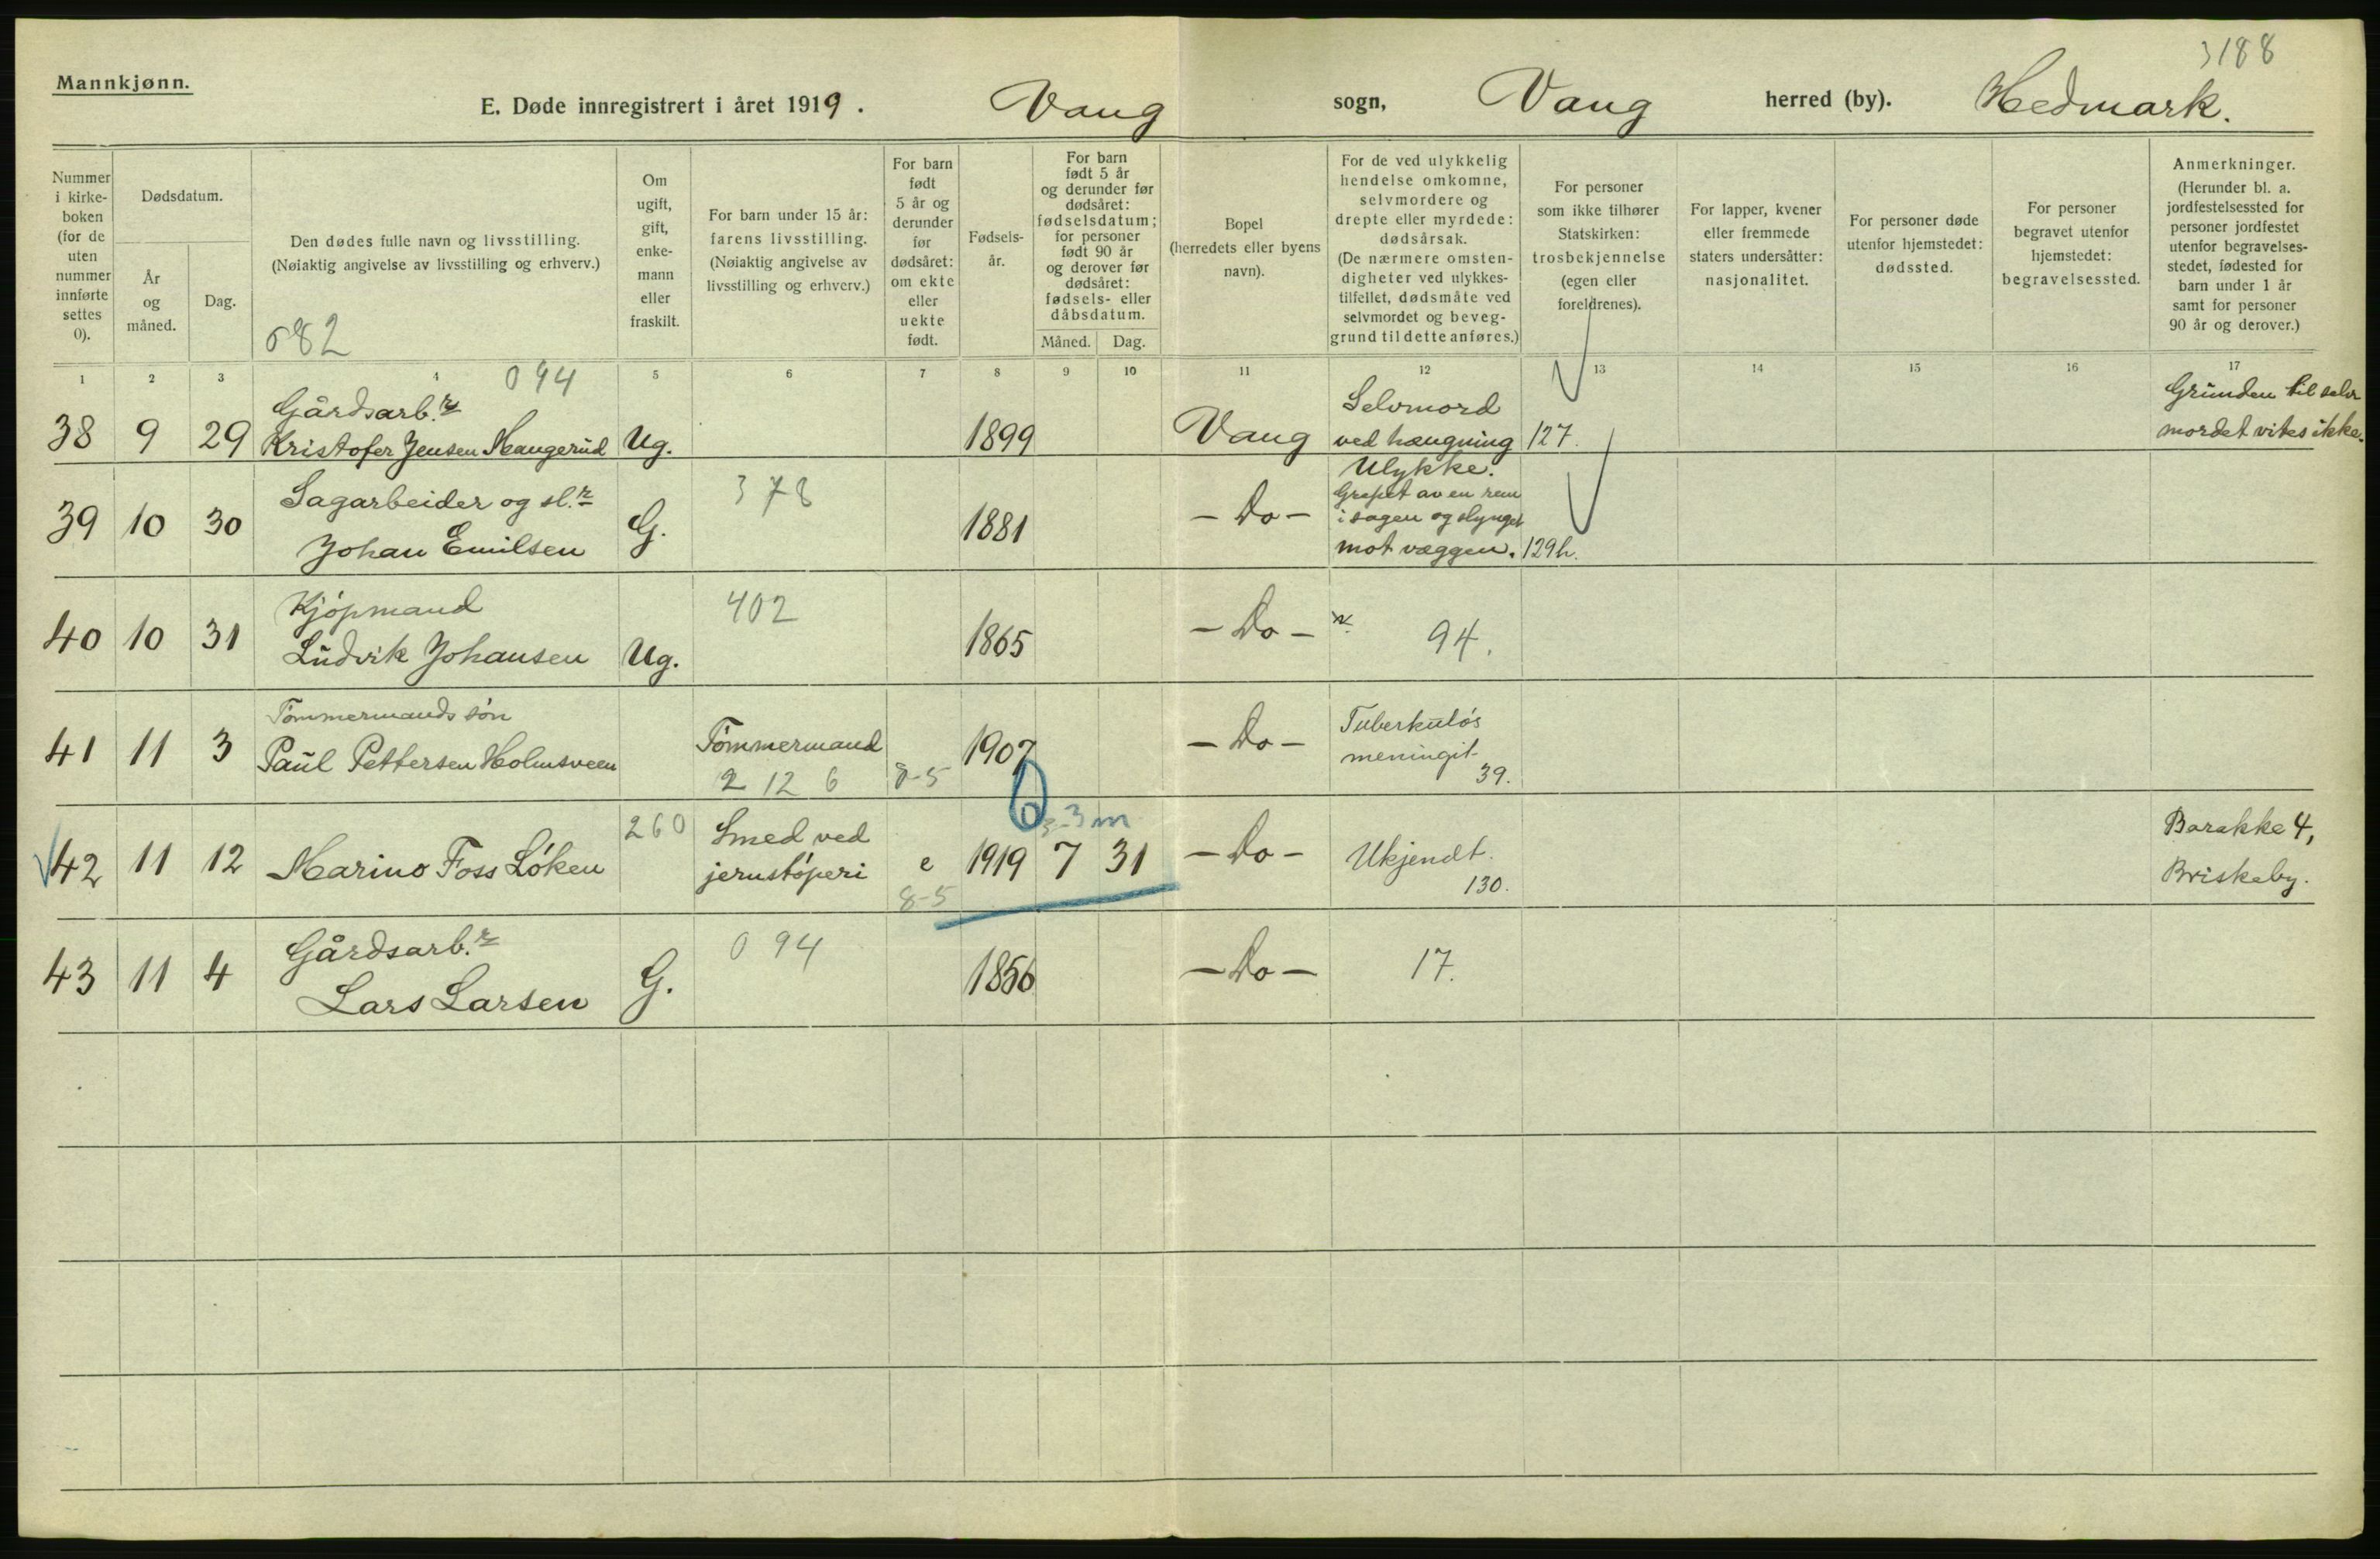 3188
Mannkjønn.
E. Døde innregistrert i året 1919. Vang sogn, Vang herred (by). Hedmark.
Nummer i kirkeboken (for de uten nummer innførte settes 0).
Dødsdatum.
År og måned.
Dag.
Den dødes fulle navn og livsstilling.
(Nøiaktig angivelse av livsstilling og erhverv.)
682
Om ugift, gift, enkemann eller fraskilt.
For barn under 15 år: farens livsstilling.
(Nøiaktig angivelse av livsstilling og erhverv.)
For barn født 5 år og derunder før dødsåret: om ekte eller uekte født.
Fødselsår.
For barn født 5 år og derunder før dødsåret: fødselsdatum; for personer født 90 år og derover før dødsåret: fødsels- eller dåbsdatum.
Måned. Dag.
Bopel
(herredets eller byens navn).
For de ved ulykkelig hendelse omkomne, selvmordere og drepte eller myrdede: dødsårsak.
(De nærmere omstendigheter ved ulykkestilfellet, dødsmåte ved selvmordet og beveggrund til dette anføres.)
For personer som ikke tilhører Statskirken: trosbekjennelse (egen eller foreldrenes).
For lapper, kvener eller fremmede staters undersåtter: nasjonalitet.
For personer døde utenfor hjemstedet: dødssted.
For personer begravet utenfor hjemstedet: begravelsessted.
Anmerkninger.
(Herunder bl. a. jordfestelsessted for personer jordfestet utenfor begravelsesstedet, fødested for barn under 1 år samt for personer 90 år og derover.)
1 2 3 4 5 6 7 8 9 10 11 12 13 14 15 16 17
094
Gårdsarb.r Selvmord Grunden til selv
38 9 29 Kristofer Jensen Haugerud Ug. 1899 Vang ved hængning 127. mordet vites ikke.
Sagarbeider og sl.r 378 Ulykke.
Grepet av en rem
39 10 30 G. 1881 - Do - i sagen og slynget
Johan Emilsen mot væggen. 129h.
Kjøpmand 402
40 10 31 Ludvik Johansen Ug. 1865 - Do - 94.
Tømmermands søn Tuberkuløs
41 11 3 Paul Pettersen Holmsveen Tømmermand 1907 - Do - meningit
2 12 6 8-5 39.
6 3-3 m
260 Smed ved Barakke 4,
42 11 12 Marino Foss Løken jernstøperi e 1919 7 31 - Do - Ukjendt. Briskeby.
8-5 130.
Gårdsarb.r 094
43 11 4 Lars Larsen G. 1856 - Do - 17.